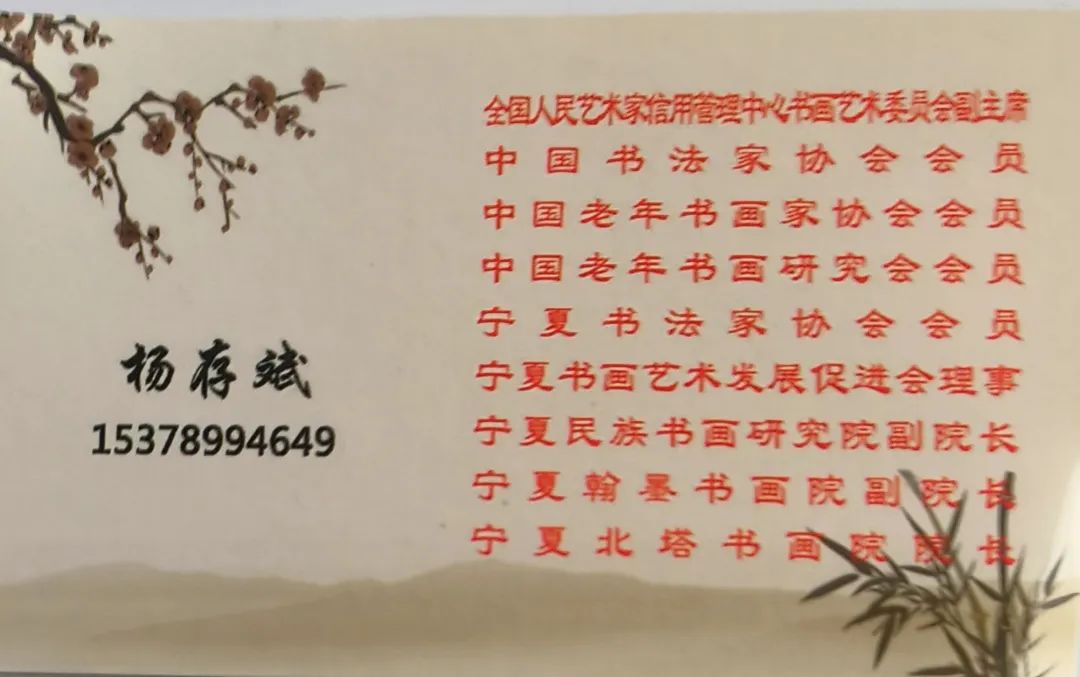 杨存斌
15378994649
全国人民艺术家信用管理中心书画艺术委员会副主席
中国书法家协会会员
中国老年书画家协会会员
中国老年书画研究会会员
宁夏书法家协会会员
宁夏书画艺术发展促进会理事
宁夏民族书画研究院副院长
宁夏翰墨书画院副院长
宁夏北塔书画院院长